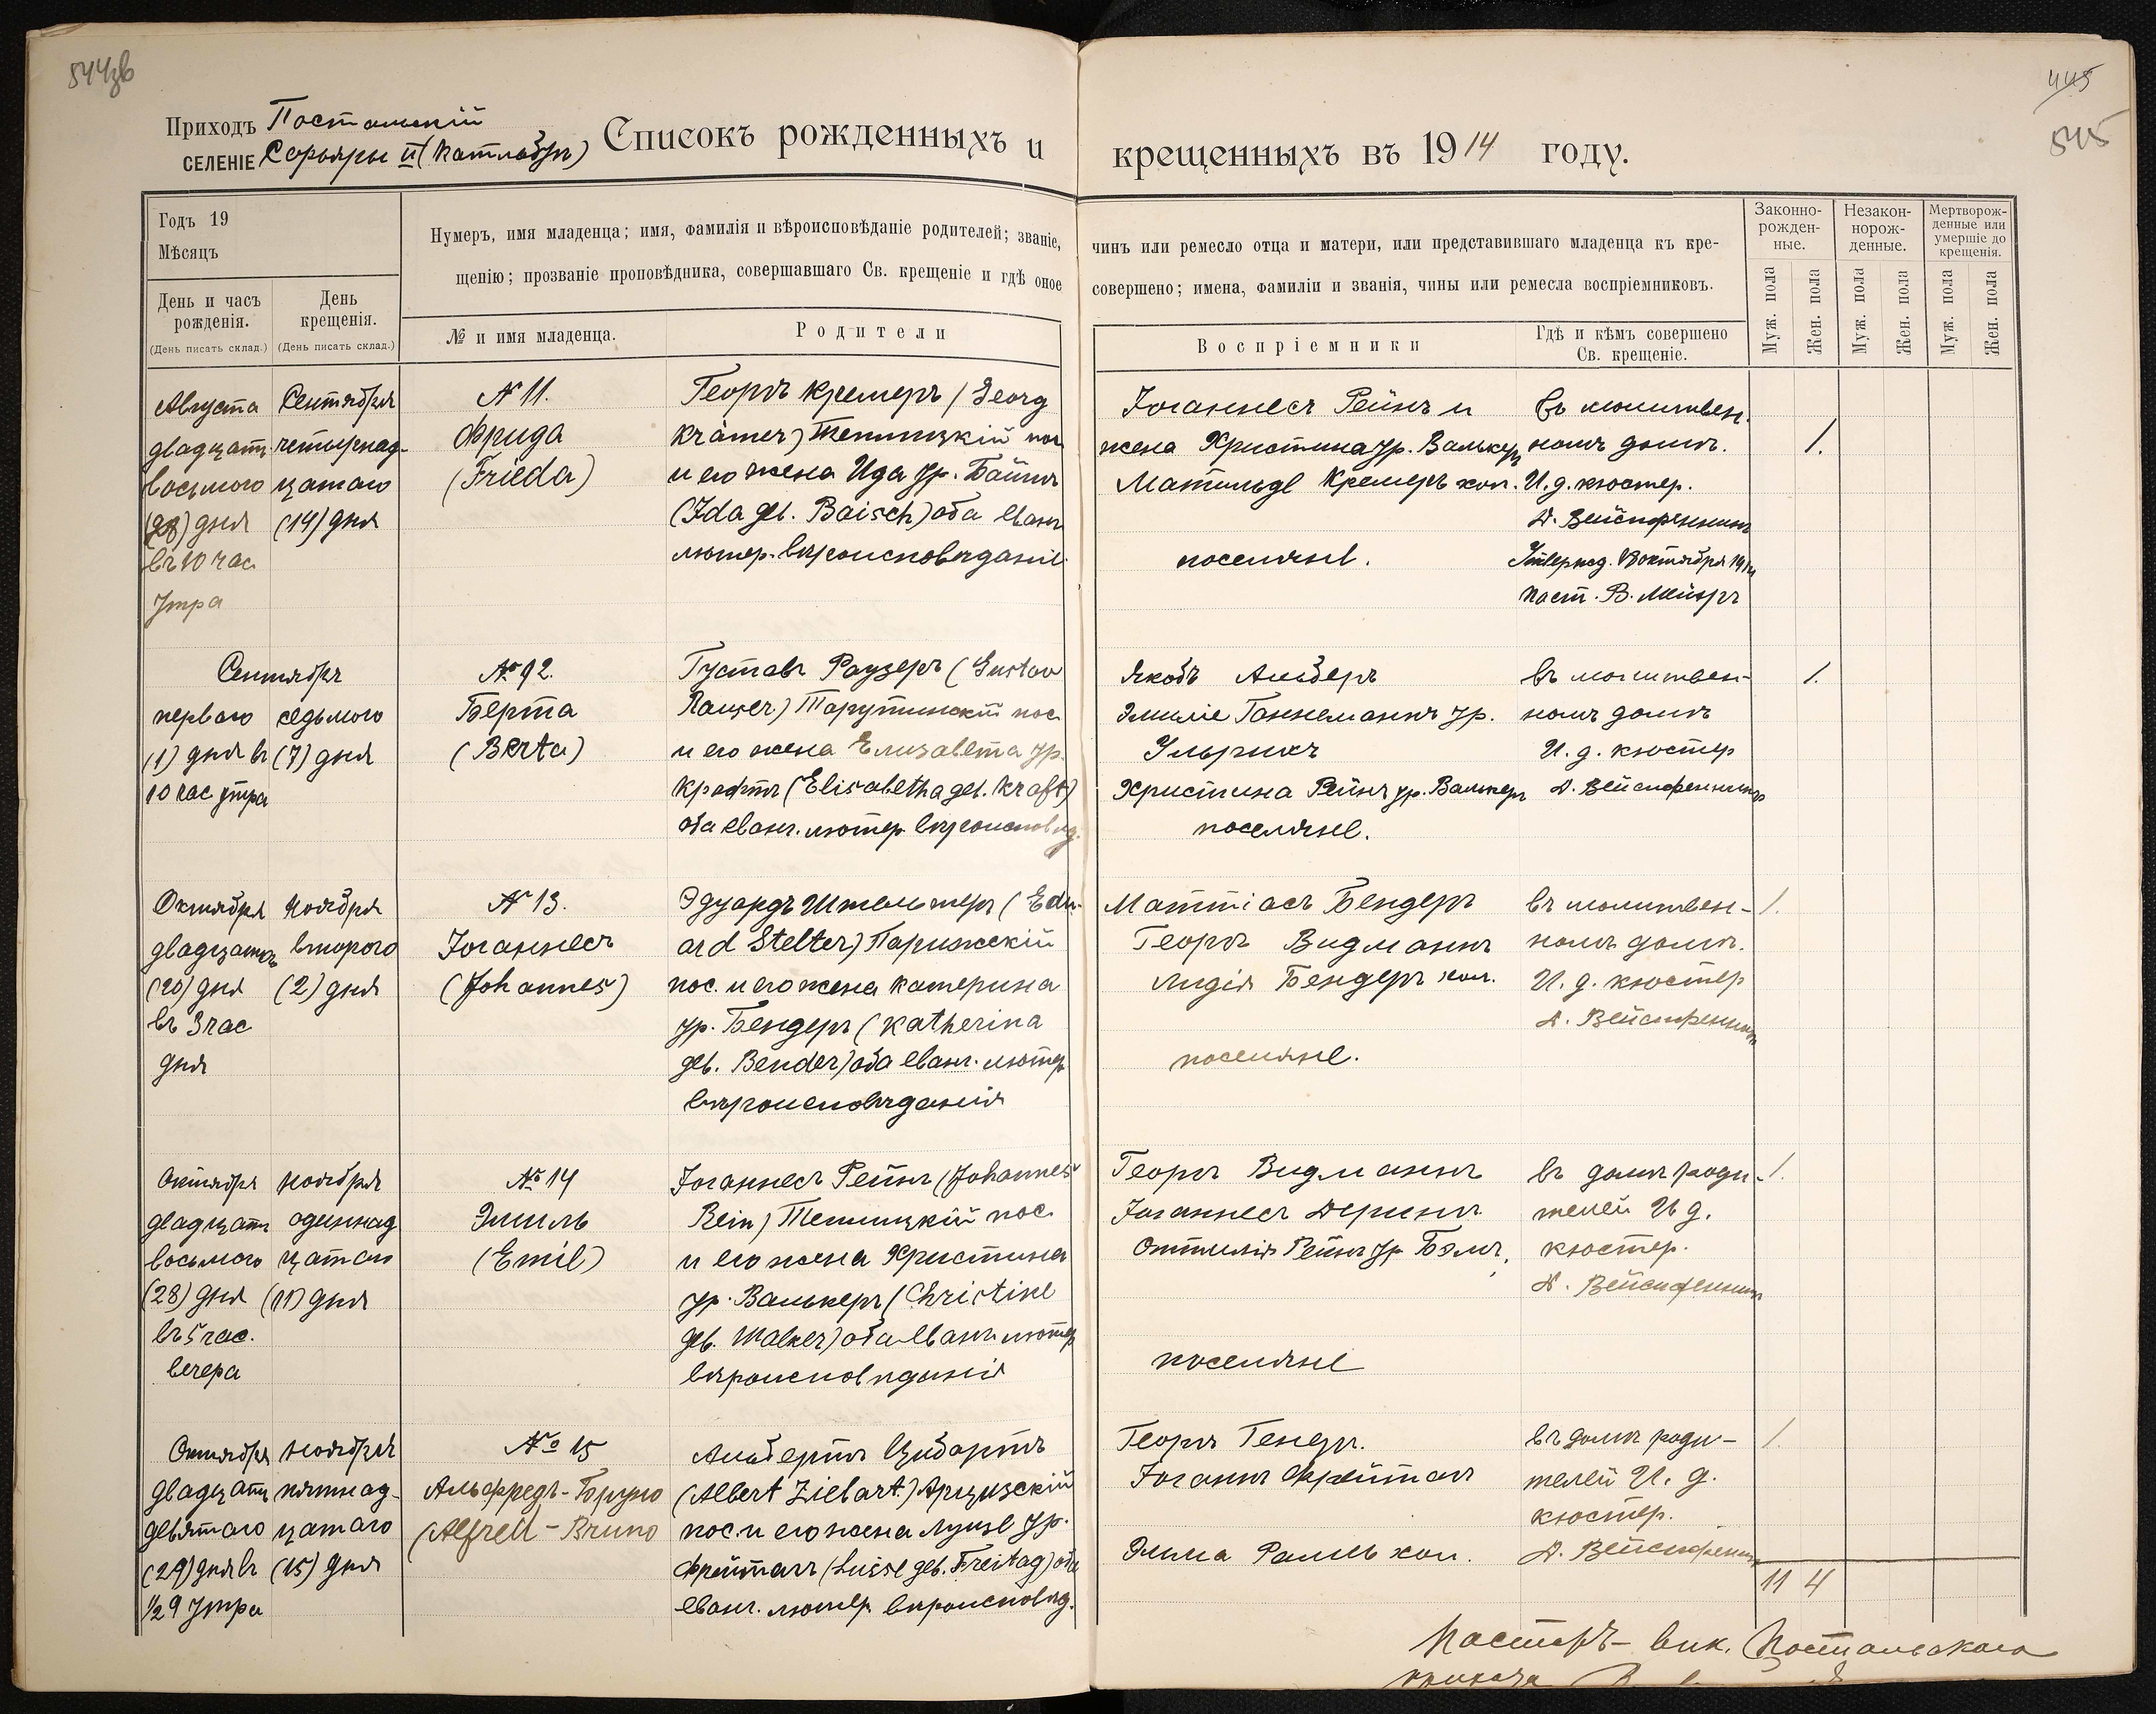 544зв
445
545
Приходъ Постальскій
СЕЛЕНІЕ Сарьяры II (Катлабугъ)
Списокъ рожденныхъ и крещенныхъ въ 1914 году.
Годъ 19
Мѣсяцъ
День и часъ рожденія.
(День писать склад.)
День крещенія.
(День писать склад.)
Нумеръ, имя младенца; имя, фамилія и вѣроисповѣданіе родителей; званіе, чинъ или ремесло отца и матери, или представившаго младенца къ кре-
щенію; прозваніе проповѣдника, совершавшаго Св. крещеніе и гдѣ оное совершено; имена, фамиліи и званія, чины или ремесла воспріемниковъ.
№ и имя младенца.
Родители
Воспріемники
Гдѣ и кѣмъ совершено
Св. крещеніе.
Законно-
рожден-
ные.
Незакон-
норож-
денные.
Мертворож-
денные или
умершіе до
крещенія.
Муж. пола
Жен. пола
Муж. пола
Жен. пола
Муж. пола
Жен. пола
Августа
двадцать
восьмого
(28) дня
въ 10 час.
утра
Сентября
четырнад-
цатаго
(14) дня
№ 11.
Фрида
(Frieda)
Георгъ Кремеръ (Georg
Krämer) Теплицкій пос
и его жена Ида ур. Байшъ
(Ida geb. Baisch) оба еванг
лютер. вѣроисповѣданія
Іоганнесъ Рейнъ и
жена Христина ур. Валькеръ
Матильде Кремеръ хол.
поселяне.
въ молитвен.
номъ домѣ.
И. д. кюстер.
А. Вейспфеннингъ
Утвержд. октября 1914
паст. В. Мейеръ
1.
Сентября
перваго
(1) дня въ
10 час утра
седьмого
(7) дня
№ 12.
Берта
(Berta)
Густавъ Раузеръ (Gustav
Rauser) Тарутинскій пос.
и его жена Елизавета ур.
Крафтъ (Elisabetha geb. Kraft)
оба еванг. лютер. вѣроисповѣд.
Якобъ Альберъ
Эмиліе Ганнеманнъ ур.
Ульрихъ
Христина Рейнъ ур. Валькеръ
поселяне.
въ молитвен-
номъ домѣ
И. д. кюстер
А. Вейспфеннингъ
1.
Октября
двадцатаго
(20) дня
въ 3 час
дня
Ноября
второго
(2) дня
№ 13.
Іоганнесъ
(Johannes)
Эдуардъ Штельтеръ (Edu-
ard Stelter) Парижскій
пос. и его жена Катерина
ур. Бендеръ (Katherina
geb. Bender) оба еванг. лютер
вѣроисповѣданія
Маттіасъ Бендеръ
Георгъ Видманнъ
Лидія Бендеръ хол.
поселяне.
въ молитвен-
номъ домѣ.
И. д. кюстер
А. Вейспфеннингъ
1.
Октября
двадцать
восьмого
(28) дня
въ 5 час.
вечера
ноября
одиннад
цатаго
(11) дня
№ 14
Эмиль
(Emil)
Іоганнесъ Рейнъ (Johannes
Rein) Теплицкій пос.
и его жена Христина
ур. Валькеръ (Christine
geb. Walker) оба еванг. лютер
вѣроисповѣданія
Георгъ Видманнъ
Іоганнесъ Дерингъ
Оттилія Рейнъ ур.
поселяне
въ домѣ роди-
телей И д.
кюстер.
А. Вейспфеннингъ
1.
Октября
двадцать
девятаго
(29) дня въ
½ 9 утра
ноября
пятнад-
цатаго
(15) дня
№ 15
Альфредъ-Бруно
(Alfred-Bruno
Альбертъ Цибартъ
(Albert Ziebart.) Арцизскій
пос. и его жена Луизе ур.
Фрейтагъ (Luise geb. Freitag) оба
еванг. лютер. вѣроисповѣд.
Георгъ
Іоганнъ Фрейтагъ
Эмма хол.
въ домѣ роди-
телей И. д.
кюстер.
А. Вейспфеннингъ
1.
11 4
Пасторъ-вик. Постальскаго
прихода